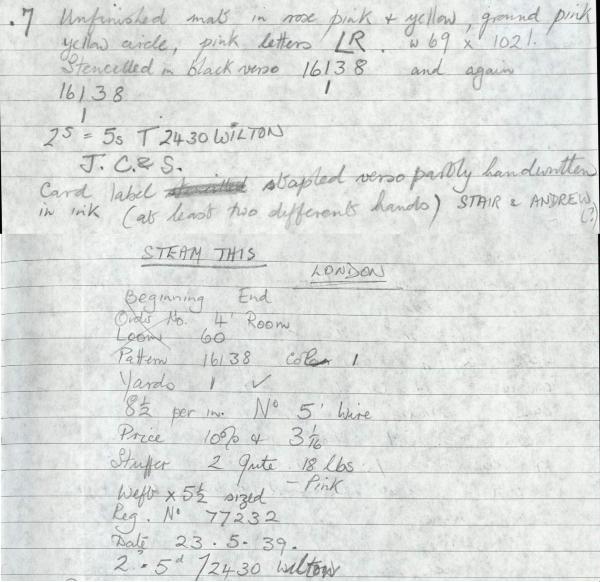 .7 Unfinished mat in rose pink & yellow, ground pink
yellow circle, pink letters LR. w 69 x 102 l.
Stencilled in black verso 16138 and again
1
16138
1
2s = 5s T 2430 WILTON
J. C. & S.
Card label stapled verso partly handwritten
in ink (at least two different hands) STAIR & ANDREW
(?)
STEAM THIS
LONDON
Beginning End
Order No. 4' Room
Loom 60
Pattern 16138 Color 1
Yards 1 ✓
8½ per in. No 5' Wire
Price 10% & 3 1/16
Stuffer 2 Jute 18 lbs
- Pink
Weft x 5½ sized
Reg. No 77232
Date 23.5.39.
2s. 5d /2430 Wilton